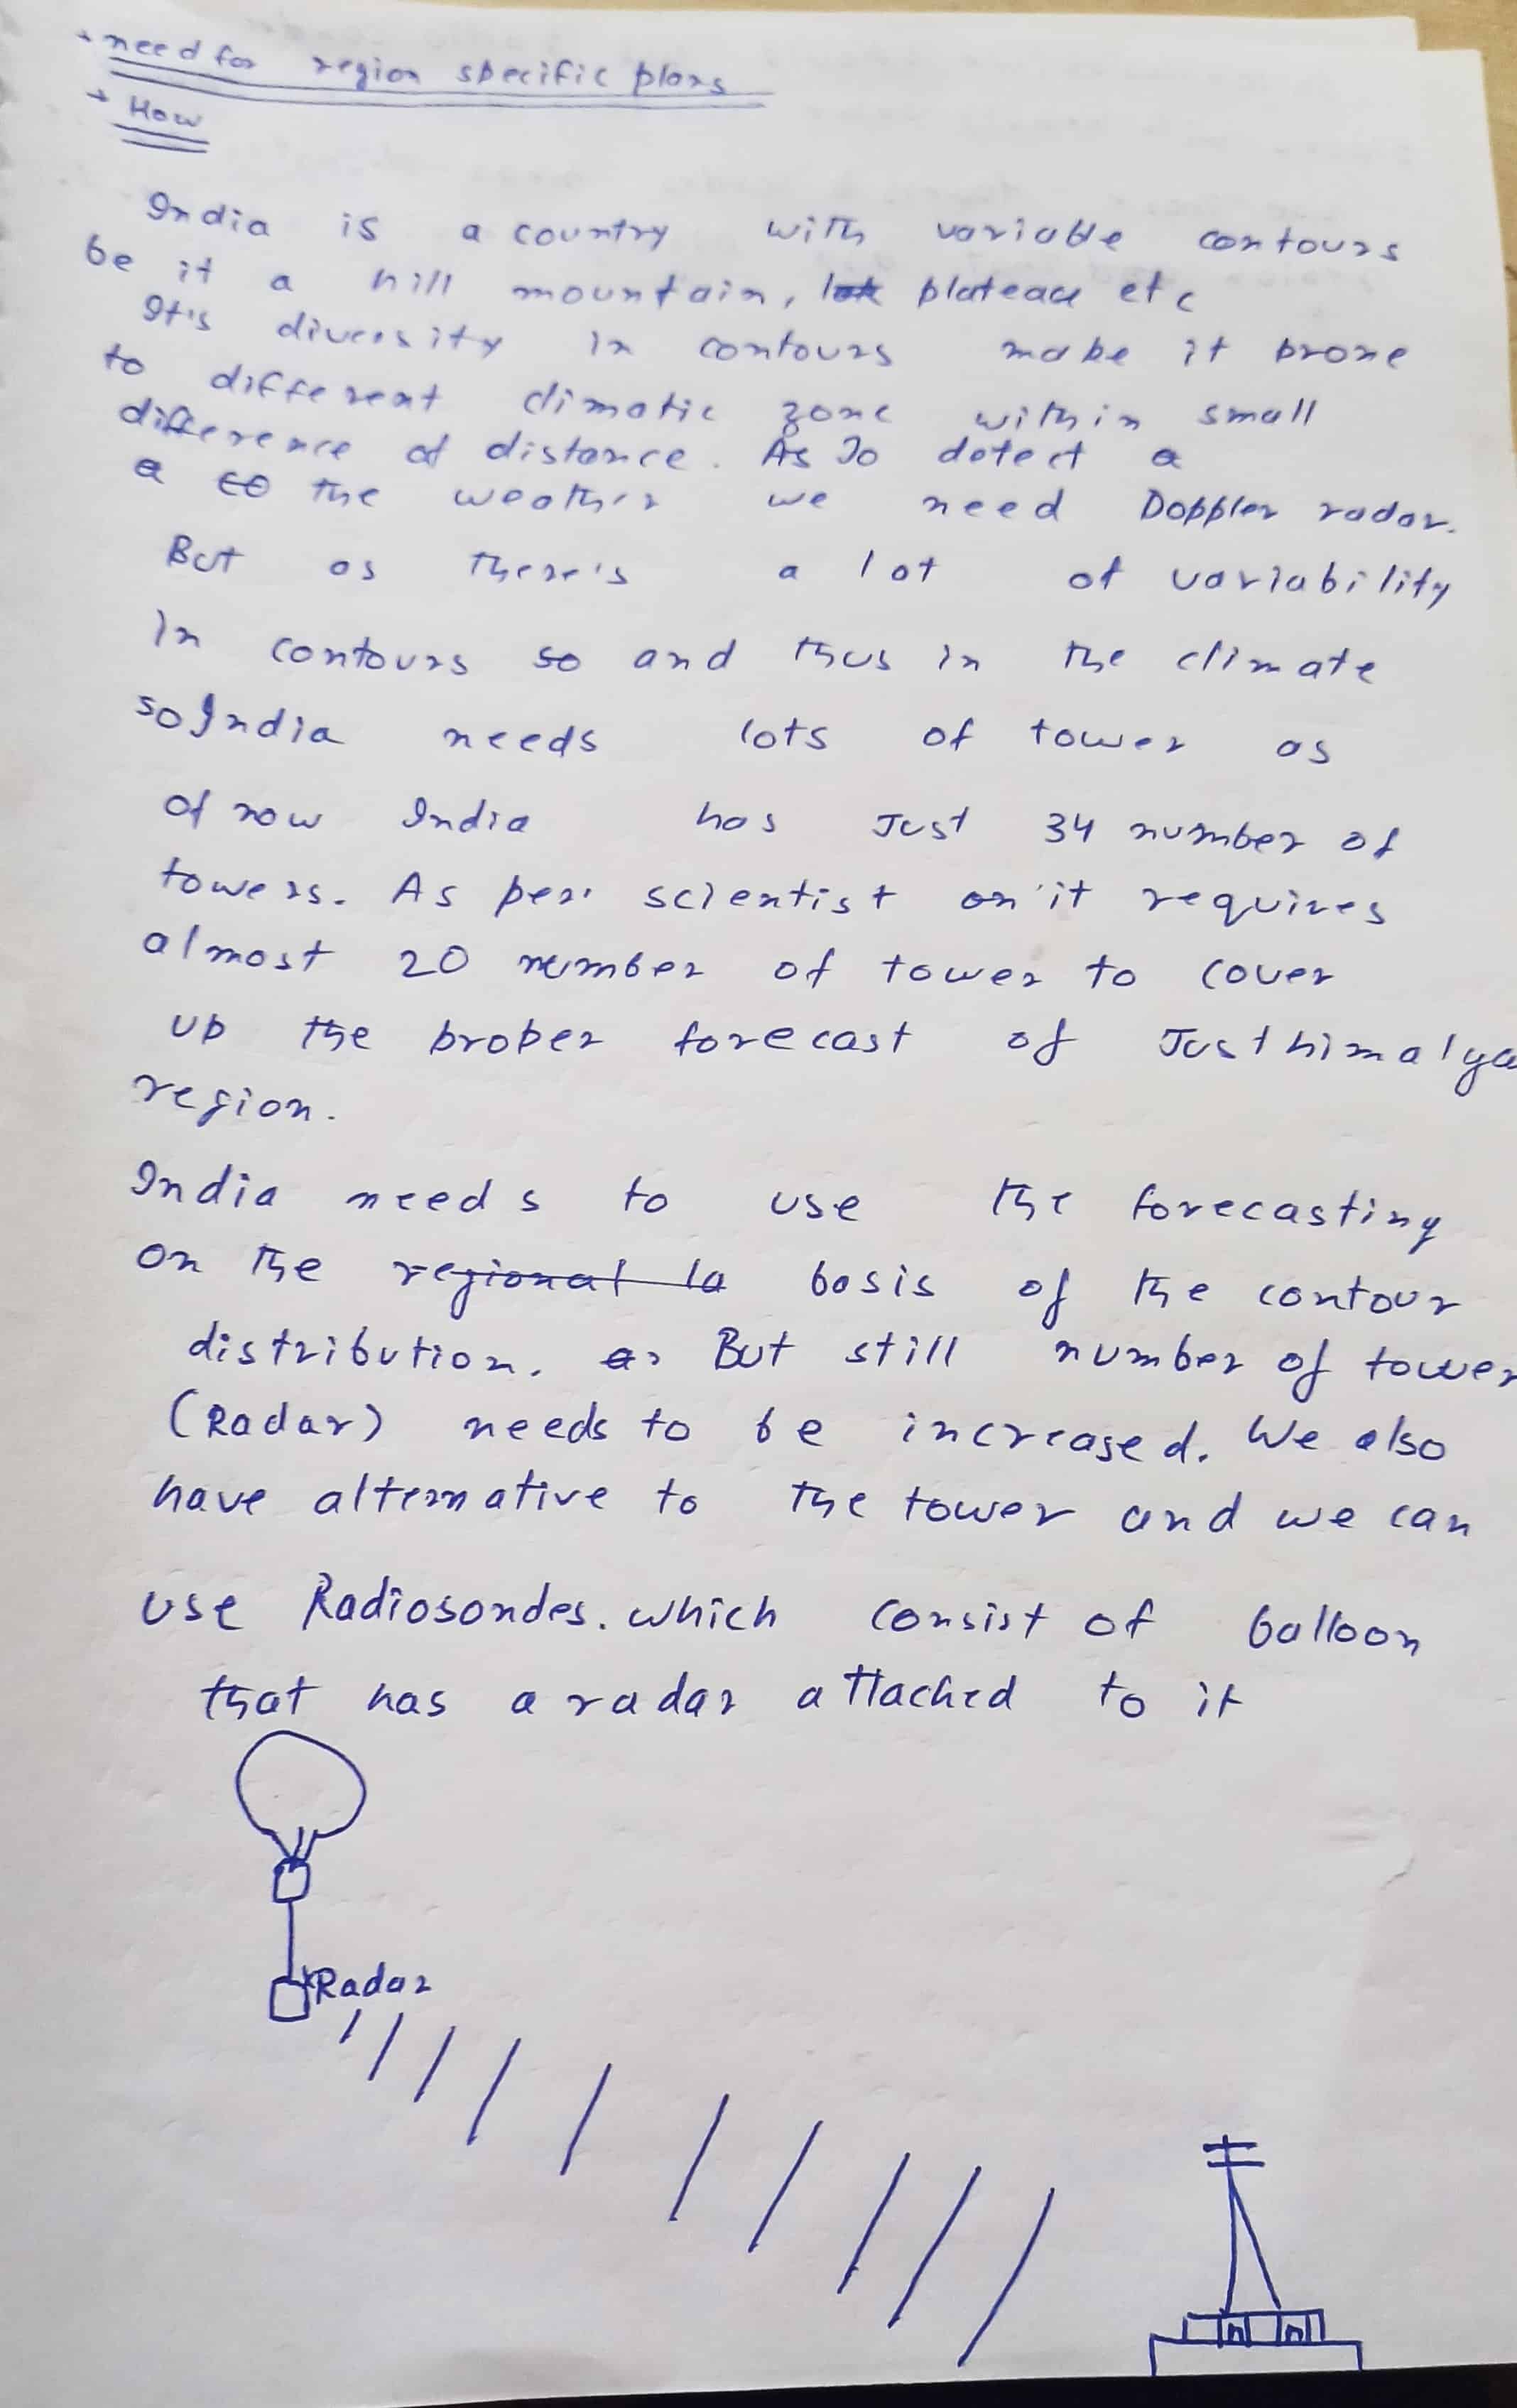 → need for region specific plans
→ How
India is a country with variable contours
be it a hill mountain, plateau etc
It's diversity in contours make it prone
to different climatic zone within small
difference of distance. As To detect a
a to the weather we need Doppler radar.
But as there's a lot of variability
In contours so and thus in the climate
so India needs lots of tower as
of now India has Just 34 number of
towers. As per scientist on it requires
almost 20 number of tower to cover
up the proper forecast of Just himalya
region.
India needs to use the forecasting
on the regional la basis of the contour
distribution. as But still number of tower
(Radar) needs to be increased. We also
have alternative to the tower and we can
use Radiosondes. which consist of balloon
that has a radar attached to it
Radar